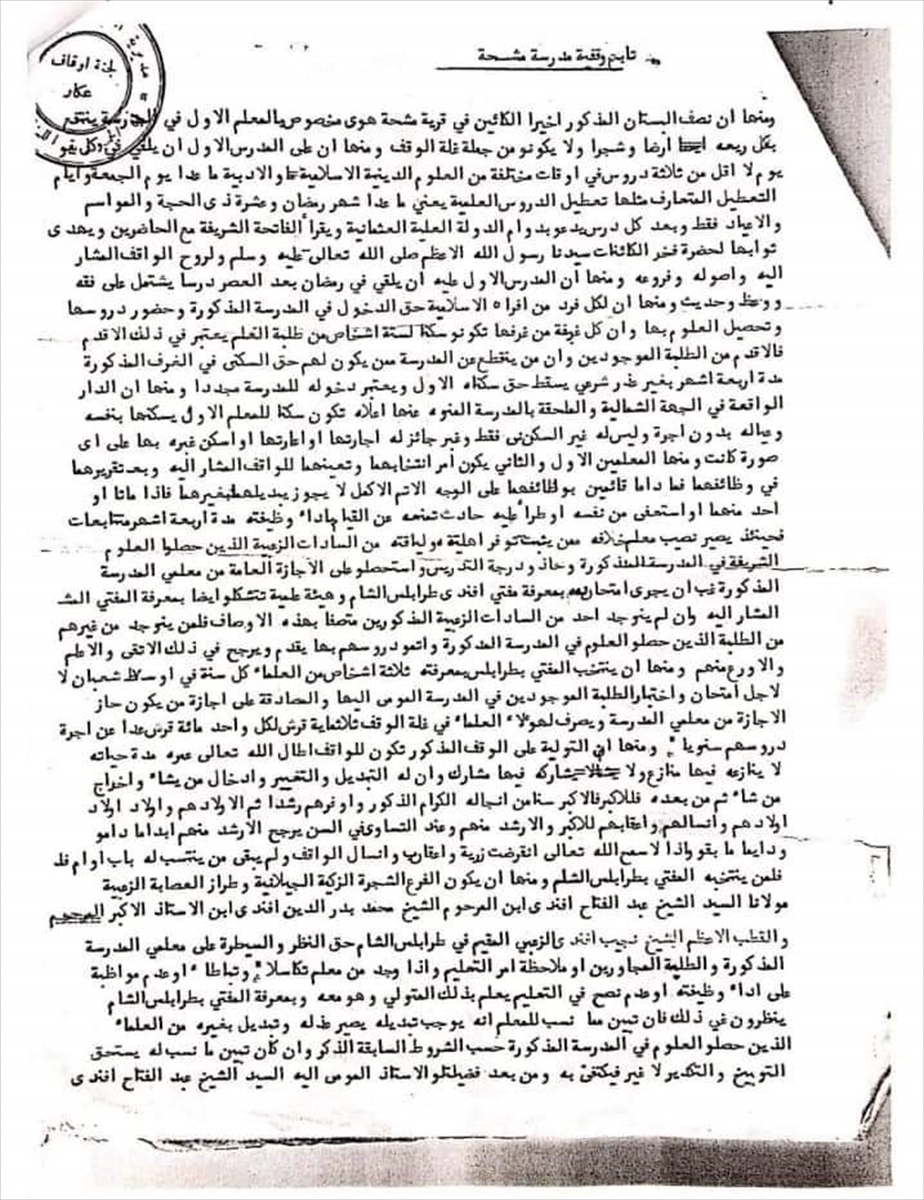 لجنة اوقاف
عكار
تابع وقفية مدرسة مشحة
ومنها ان نصف البستان المذكور اخيرا الكائين في قرية مشحة هوى مخصوص بالمعلم الاول في المدرسة ينتفع
بكل ريعه ارضا وشجرا ولا يكونو من جملة غلة الوقف ومنها ان على المدرس الاول ان يلقي في كل
يوم لا اقل من ثلاثة دروس في اوقات مختلفة من العلوم الدينية الاسلامية والادبية ما عدا يوم الجمعة وايام
التعطيل المتعارف مثلها تعطيل الدروس العلمية يعني ما عدا شهر رمضان وعشرة ذي الحجة والمواسم
والاعياد فقط وبعد كل درس يدعو بدوام الدولة العلية العثمانية ويقرأ الفاتحة الشريفة مع الحاضرين ويهدى
ثوابها لحضرة فخر الكائنات سيدنا رسول الله الاعظم صلى الله تعالى عليه وسلم ولروح الواقف المشار
اليه واصوله وفروعه ومنها أن المدرس الاول عليه أن يلقي في رمضان بعد العصر درسا يشتمل على فقه
ووعظ وحديث ومنها ان لكل فرد من افراد الاسلامية حق الدخول في المدرسة المذكورة وحضور دروسها
وتحصيل العلوم بها وان كل غرفة من غرفها تكونو سكنا لستة اشخاص من طلبة العلم يعتبر في ذلك الاقدم
فالاقدم من الطلبة الموجودين وان من ينقطع عن المدرسة ممن يكون لهم حق السكنى في الغرف المذكورة
مدة اربعة اشهر بغير عذر شرعي يسقط حق سكناه الاول ويعتبر دخوله للمدرسة مجددا ومنها ان الدار
الواقعة في الجهة الشمالية والملحقة بالمدرسة المنوه عنها اعلاه تكون سكنا للمعلم الاول يسكنها بنفسه
وعياله بدون اجرة وليس له غير السكنى فقط وغير جائز له اجارتها او اعارتها او اسكن غيره بها على اى
صورة كانت ومنها المعلمين الاول والثاني يكون أمر انتخابهما وتعينهما للواقف المشار اليه وبعد تقريرهما
في وظائفهما فما داما قائمين بوظائفهما على الوجه الاتم الاكمل لا يجوز تبديلهما بغيرهما فاذا ماتا او
احد منهما او استعفى من نفسه او طرأ عليه حادث تمنعه عن القيام بادا وظيفته مدة اربعة اشهر متتابعات
فحينئذ يصير نصب معلم خلافه ممن يثبت توفر اهليته ولياقته من السادات الزعبية الذين حصلوا العلوم
الشريفة في المدرسة المذكورة وحاذ ودرجة التدريس واستحصلو على الاجازة العامة من معلمي المدرسة
المذكورة غب ان يجرى امتحانهم بمعرفة مفتي افندى طرابلس الشام وهيئة علمية تتشكلو ايضا بمعرفة المفتي المشـ
المشار اليه وان لم يتوجد احد من السادات الزعبية المذكورين متصفا بهذه الاوصاف فلمن يتوجد من غيرهم
من الطلبة الذين حصلو العلوم في المدرسة المذكورة واتمو دروسهم بها يقدم ويرجح في ذلك الاتقى والاعلم
والاورع منهم ومنها ان ينتخب المفتي بطرابلس بمعرفته ثلاثة اشخاص من العلماء كل سنة في اوسط شعبان لا
لاجل امتحان واختبار الطلبة الموجودين في المدرسة المومى اليها والصادقة على اجازة من يكون حاز
الاجازة من معلمي المدرسة ويصرف لهولاء العلماء في غلة الوقف ثلاثماية قرش لكل واحد مائة قرش عدا عن اجرة
دروسهم سنويا ومنها ان التولية على الوقف المذكور تكون للواقف اطال الله تعالى عمره مدة حياته
لا ينازعه فيها منازع ولا يشاركه فيها مشارك وان له التبديل والتغيير وادخال من يشاء واخراج
من شاء ثم من بعده فللاكبر فالاكبر سنا من انجاله الكرام المذكور واوفرهم رشدا ثم الاولادهم واولاد اولاد
اولادهم وانسالهم واعقابهم للاكبر والارشد منهم وعند التساوى في السن يرجح الارشد منهم ابدا ما دامو
ودايما ما بقو واذا لا سمح الله تعالى انقرضت زرية واعقارب وانسال الواقف ولم يبقى من ينتسب له باب اوام فلـ
فلمن ينتخبه المفتي بطرابلس الشام ومنها ان يكون الفرع الشجرة الزكية الجيلانية وطراز العصابة الزعبية
مولانا السيد الشيخ عبد الفتاح افندى ابن المرحوم الشيخ محمد بدر الدين افندى ابن الاستاذ الاكبر المرحوم
والقطب الاعظم الشيخ نجيب افندى الزعبي المقيم في طرابلس الشام حق النظر والسيطرة على معلمي المدرسة
المذكورة والطلبة المجاورين او ملاحظة امر التعليم واذا وجد من معلم تكاسلا وتباطا او عدم مواظبة
على اداء وظيفته او عدم نصح في التعليم يعلم بذلك المتولي وهو معه وبمعرفة المفتي بطرابلس الشام
ينظرون في ذلك فان تبين مما نسب للمعلم انه يوجب تبديله يصير عذله وتبديل بغيره من العلماء
الذين حصلو العلوم في المدرسة المذكورة حسب الشروط السابقة الذكر وان كان تبين ما نسب له يستحق
التوبيخ والتكدير لا غير فيكتفى به ومن بعد فضيلتلو الاستاذ المومى اليه السيد الشيخ عبد الفتاح افندى